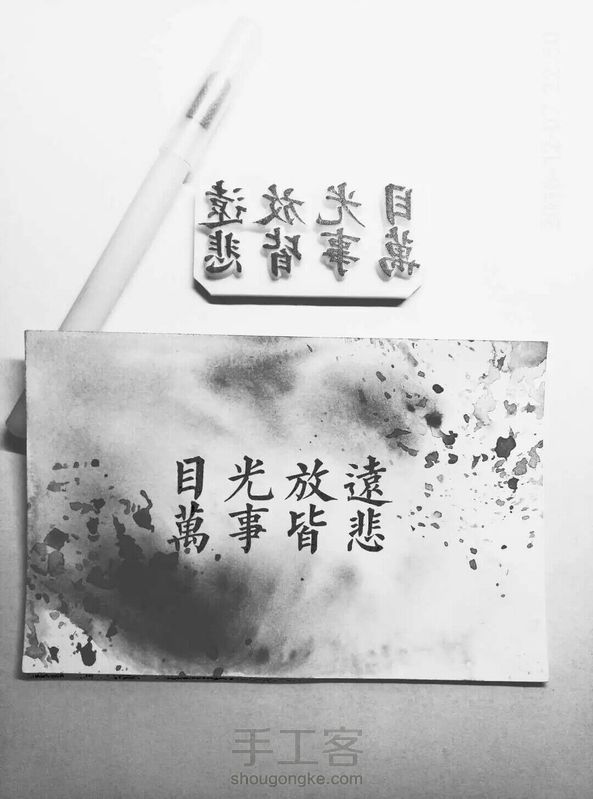 遠放光目
悲皆事萬
目光放遠
萬事皆悲
手工客
shougongke.com